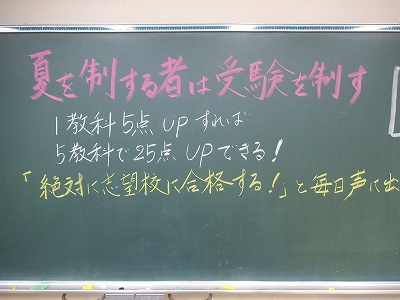 夏を制する者は受験を制す
1教科5点UPすれば
5教科で25点UPできる!
「絶対に志望校に合格する!」と毎日声に出